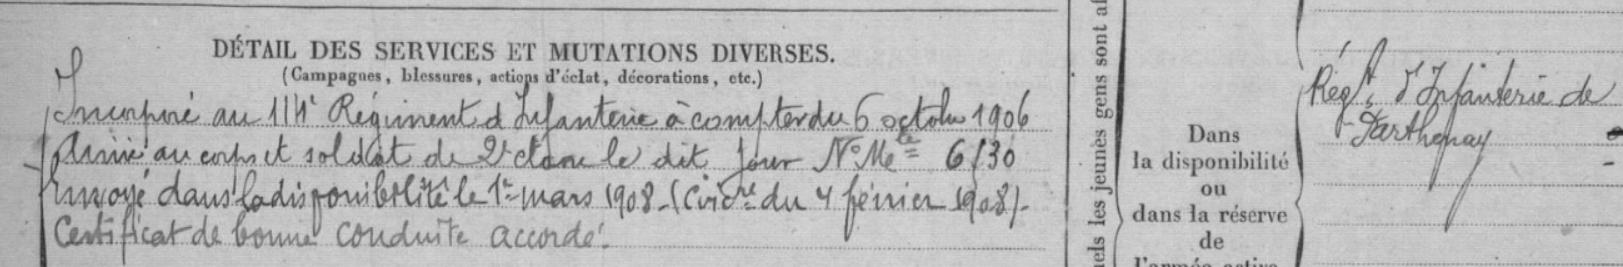 DÉTAIL DES SERVICES ET MUTATIONS DIVERSES.
(Campagnes, blessures, actions d'éclat, décorations, etc.)
Incorporé au 114e Régiment d'Infanterie à compter du 6 octobre 1906
Arrivé au corps et soldat de 2e classe le dit jour No Mle 6130
Envoyé dans la disponibilité le 1er mars 1908 - (Circre du 4 février 1908) -
Certificat de bonne conduite accordé.
nels les jeunes gens sont
Dans
la disponibilité
ou
dans la réserve
de
l'armée active
Régt d'Infanterie de
Parthenay